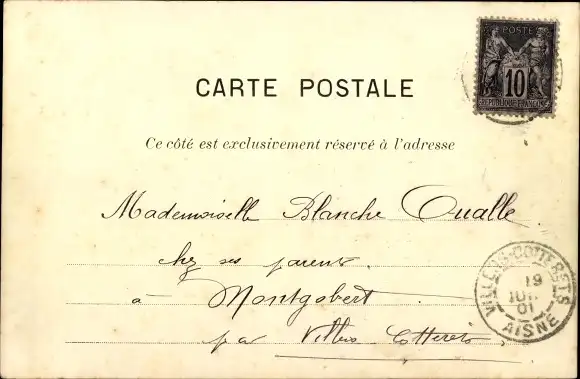 POSTE
10
REPUBLIQUE FRANCAISE
CARTE POSTALE
Ce côté est exclusivement réservé à l'adresse
Mademoiselle Blanche Oualle
chez ses parents.
à Montgobert
par Villers Cotterets
VILLERS-COTTERETS
19
JUIL
01
AISNE